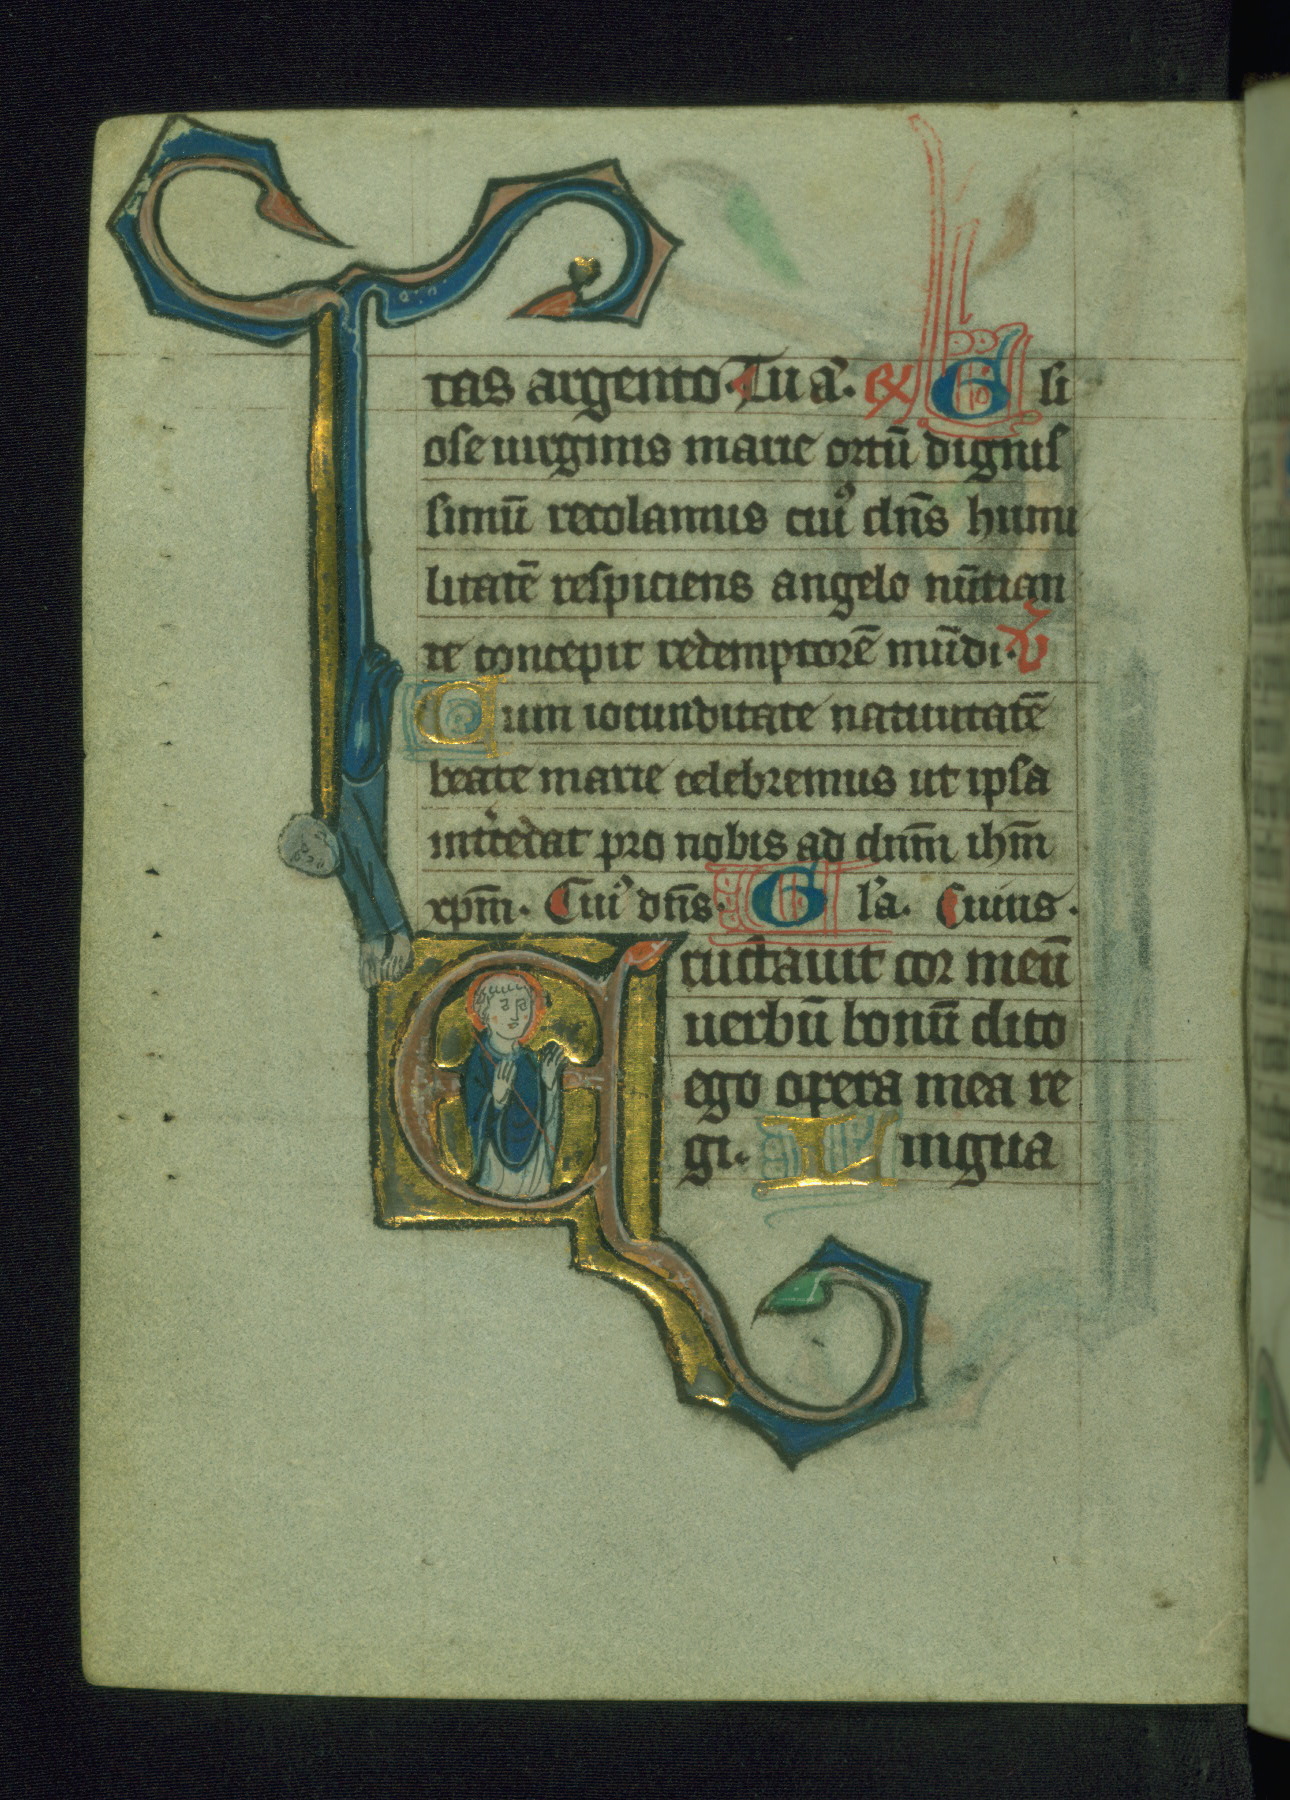 tas argento. Tu a͛. ℟ G li
ose uirginis marie ortū dignis
simū recolamus cui᾿ dn̄s humi
litatē respiciens angelo nūtian
te concepit redemptorē mūdi. ℣
Cum iocunditate natiuitatē
beate marie celebremus ut ipsa
int͛cedat pro nobis ad dnm̄ ihm̄
xpm̄. Cui᾿ dn̄s. G l͛a. Cuius.
Eructauit cor meū
uerbū bonū dico
ego opera mea re
gi. Lingua